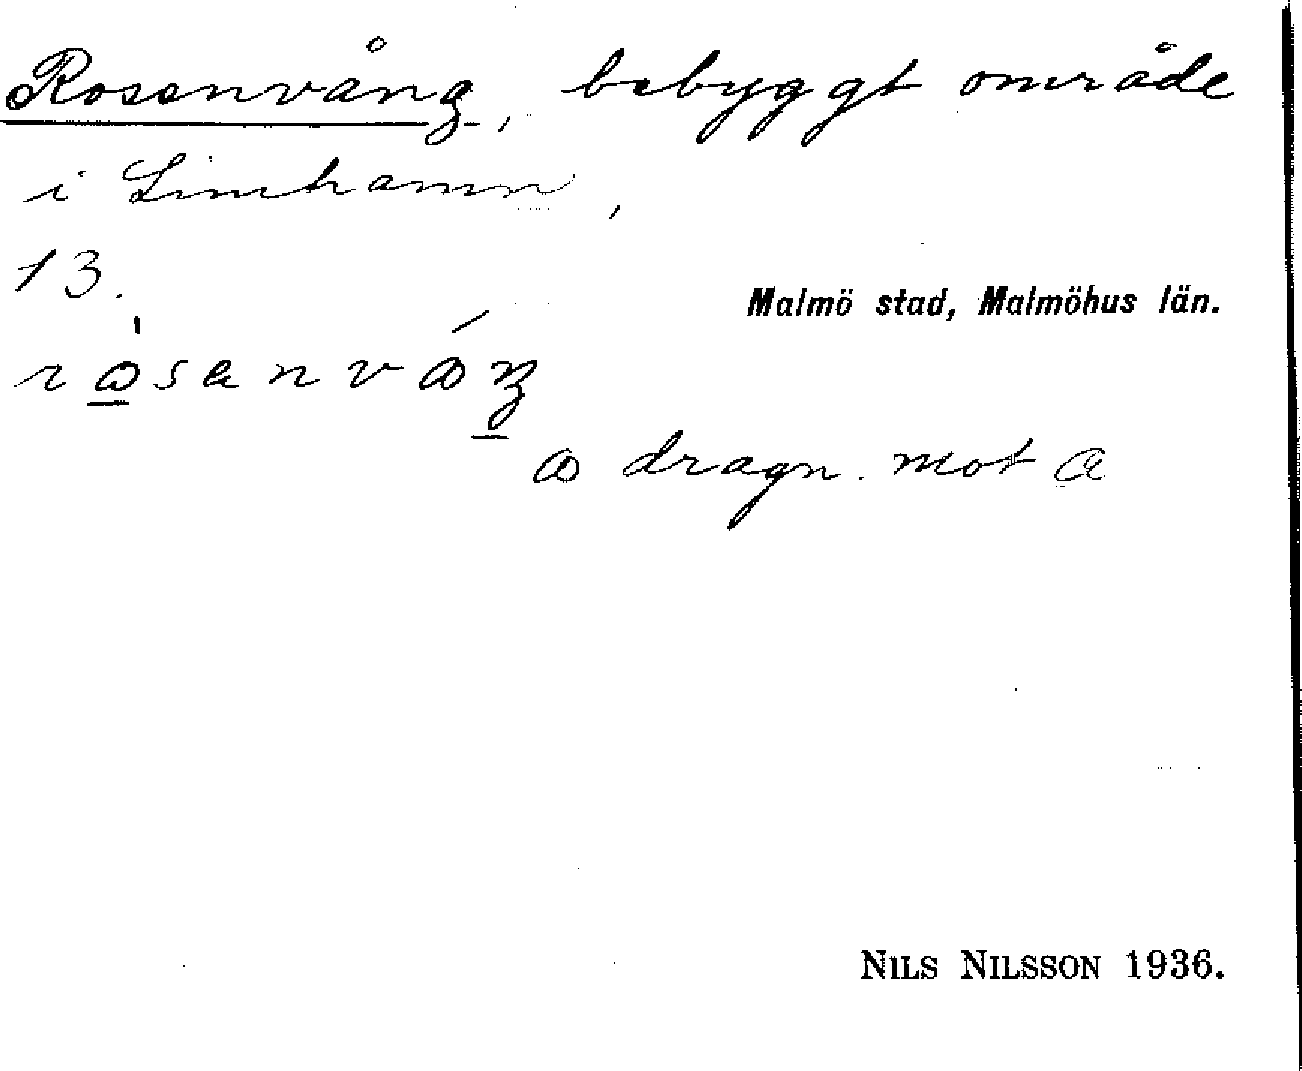 Rosenvång, bebyggt område
i Limhamn,
13.
Malmö stad, Malmöhus län.
dragn. mot
NILS NILSSON 1936.